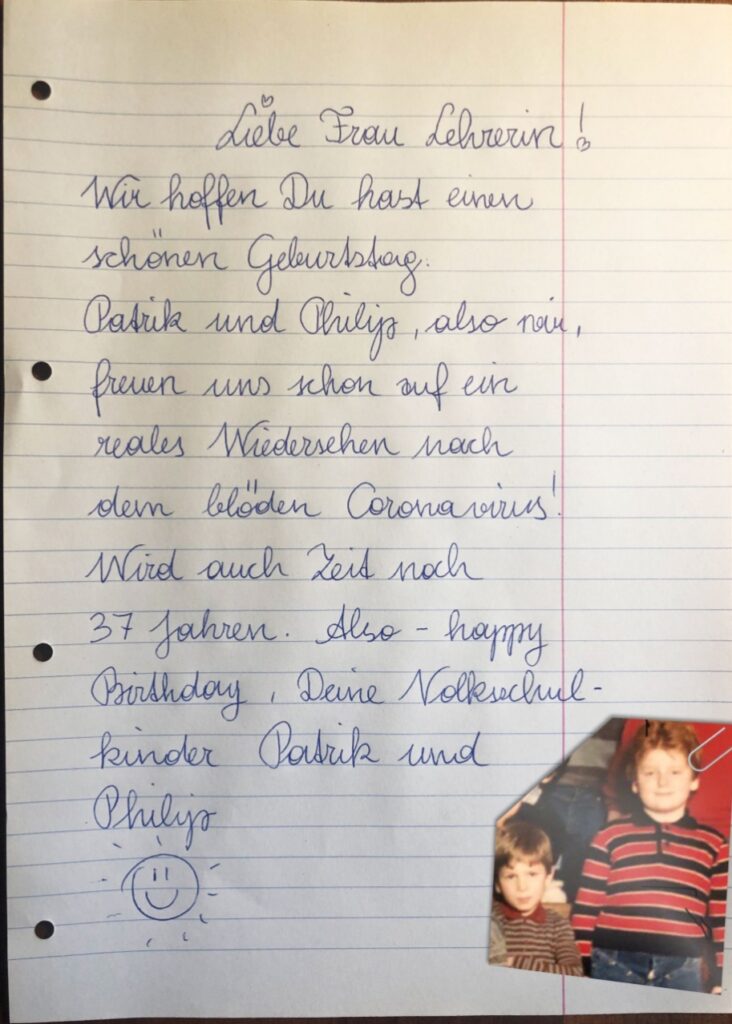 Liebe Frau Lehrerin!
Wir hoffen Du hast einen
schönen Geburtstag.
Patrik und Philip, also wir,
freuen uns schon auf ein
reales Wiedersehen nach
dem blöden Coronavirus!
Wird auch Zeit nach
37 Jahren. Also - happy
Birthday, Deine Volksschul-
kinder Patrik und
Philip